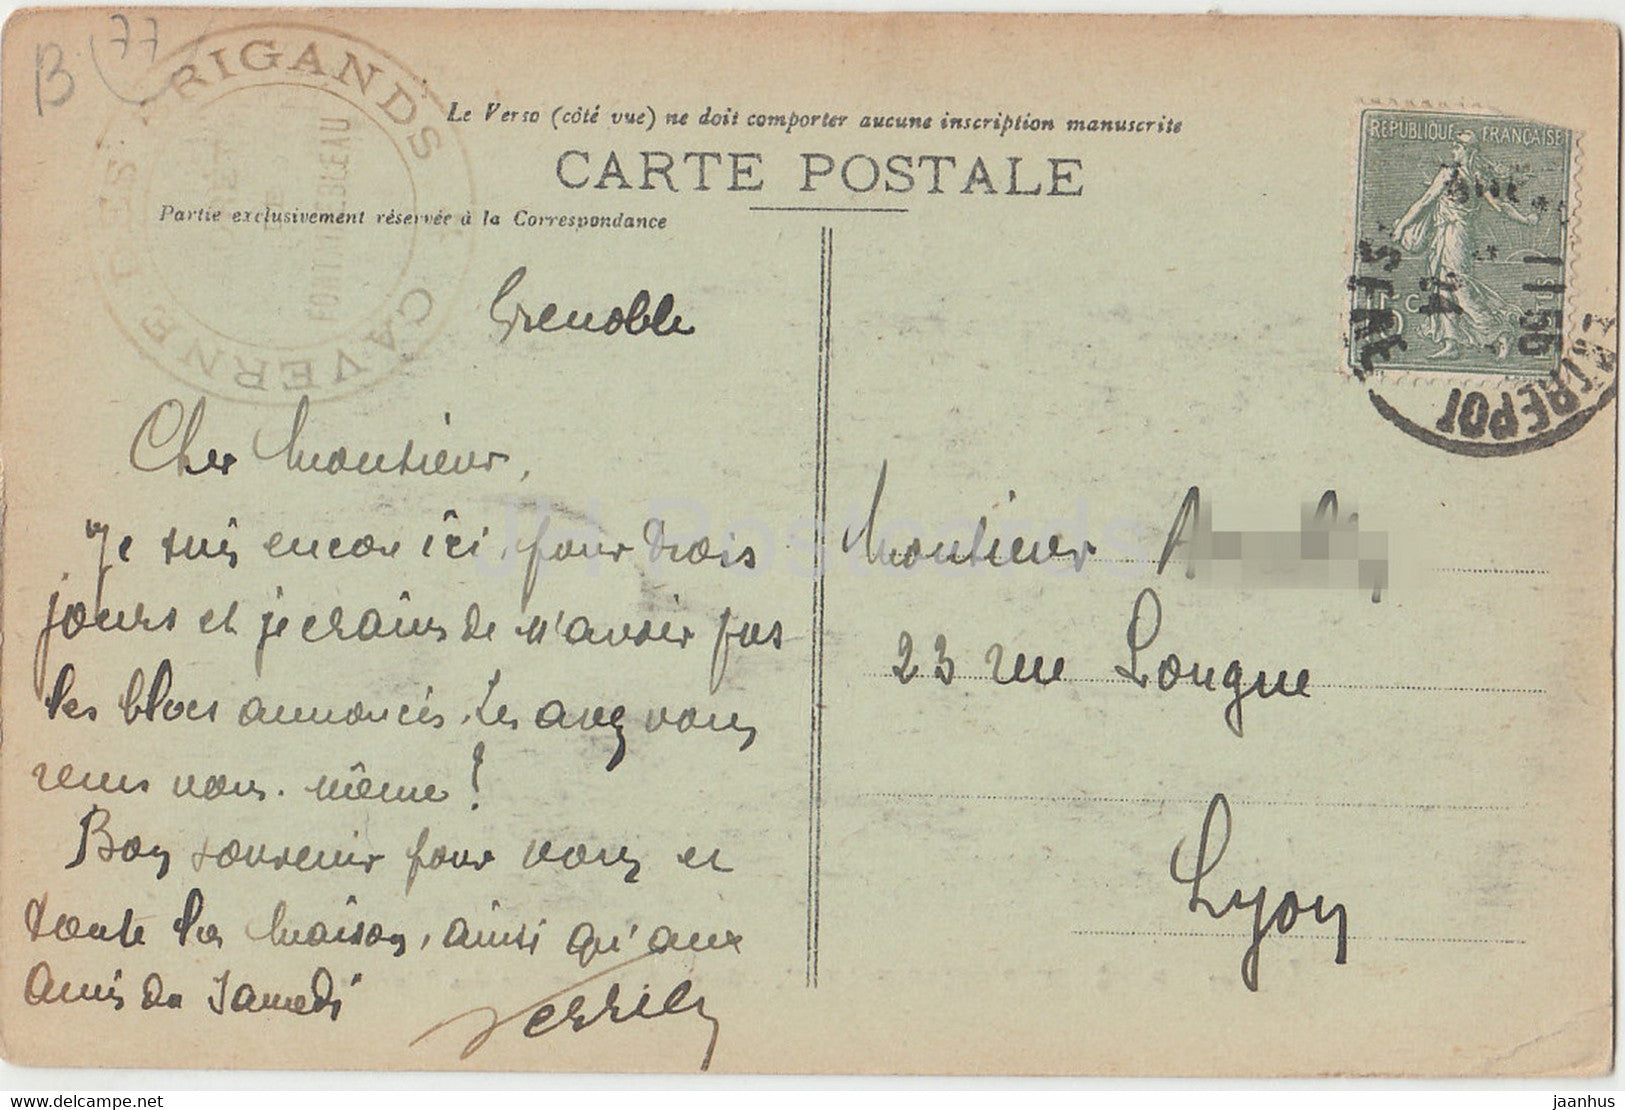 B (77)
BRIGANDS CAVERNE DES
FONTAINEBLEAU
Le Verso (côté vue) ne doit comporter aucune inscription manuscrite
CARTE POSTALE
Partie exclusivement réservée à la Correspondance
REPUBLIQUE FRANÇAISE
15 C POSTES
11 55
24
SEINE
ENTREPOT
Grenoble
Cher Monsieur,
Je suis encore ici, pour trois
jours et je crains de n'avoir pas
les blocs annoncés. Les avez vous
reçus vous-même!
Bon souvenir pour vous et
toute la maison, ainsi qu'aux
amis du Samedi
Monsieur A
23 rue Longue
Lyon
JH Postcards
www.hippostcard.com
jaanhus